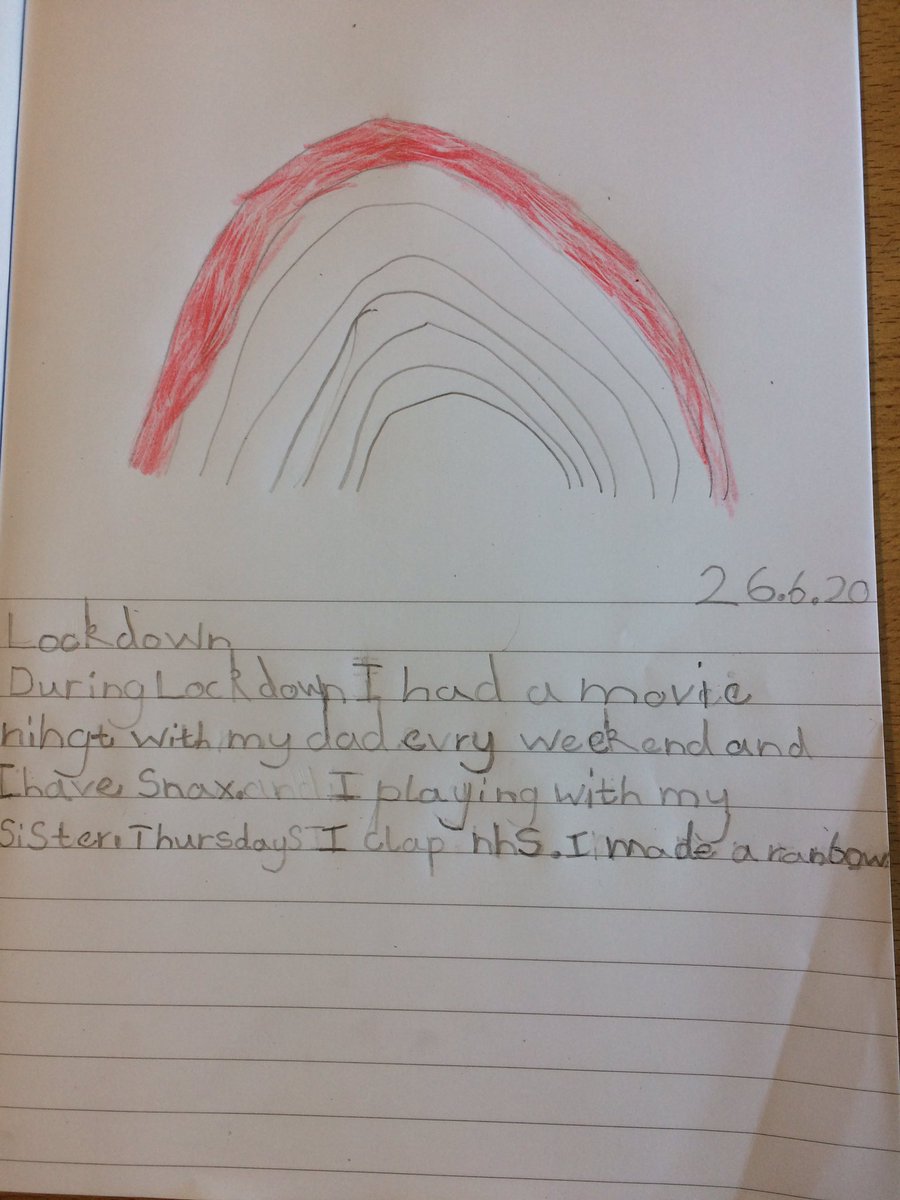 26.6.20
Lockdown
During Lockdown I had a movie
nihgt with my dad evry weekend and
I have Snax. and I playing with my
SiSter. ThursdayS I clap nhS. I made a ranbow